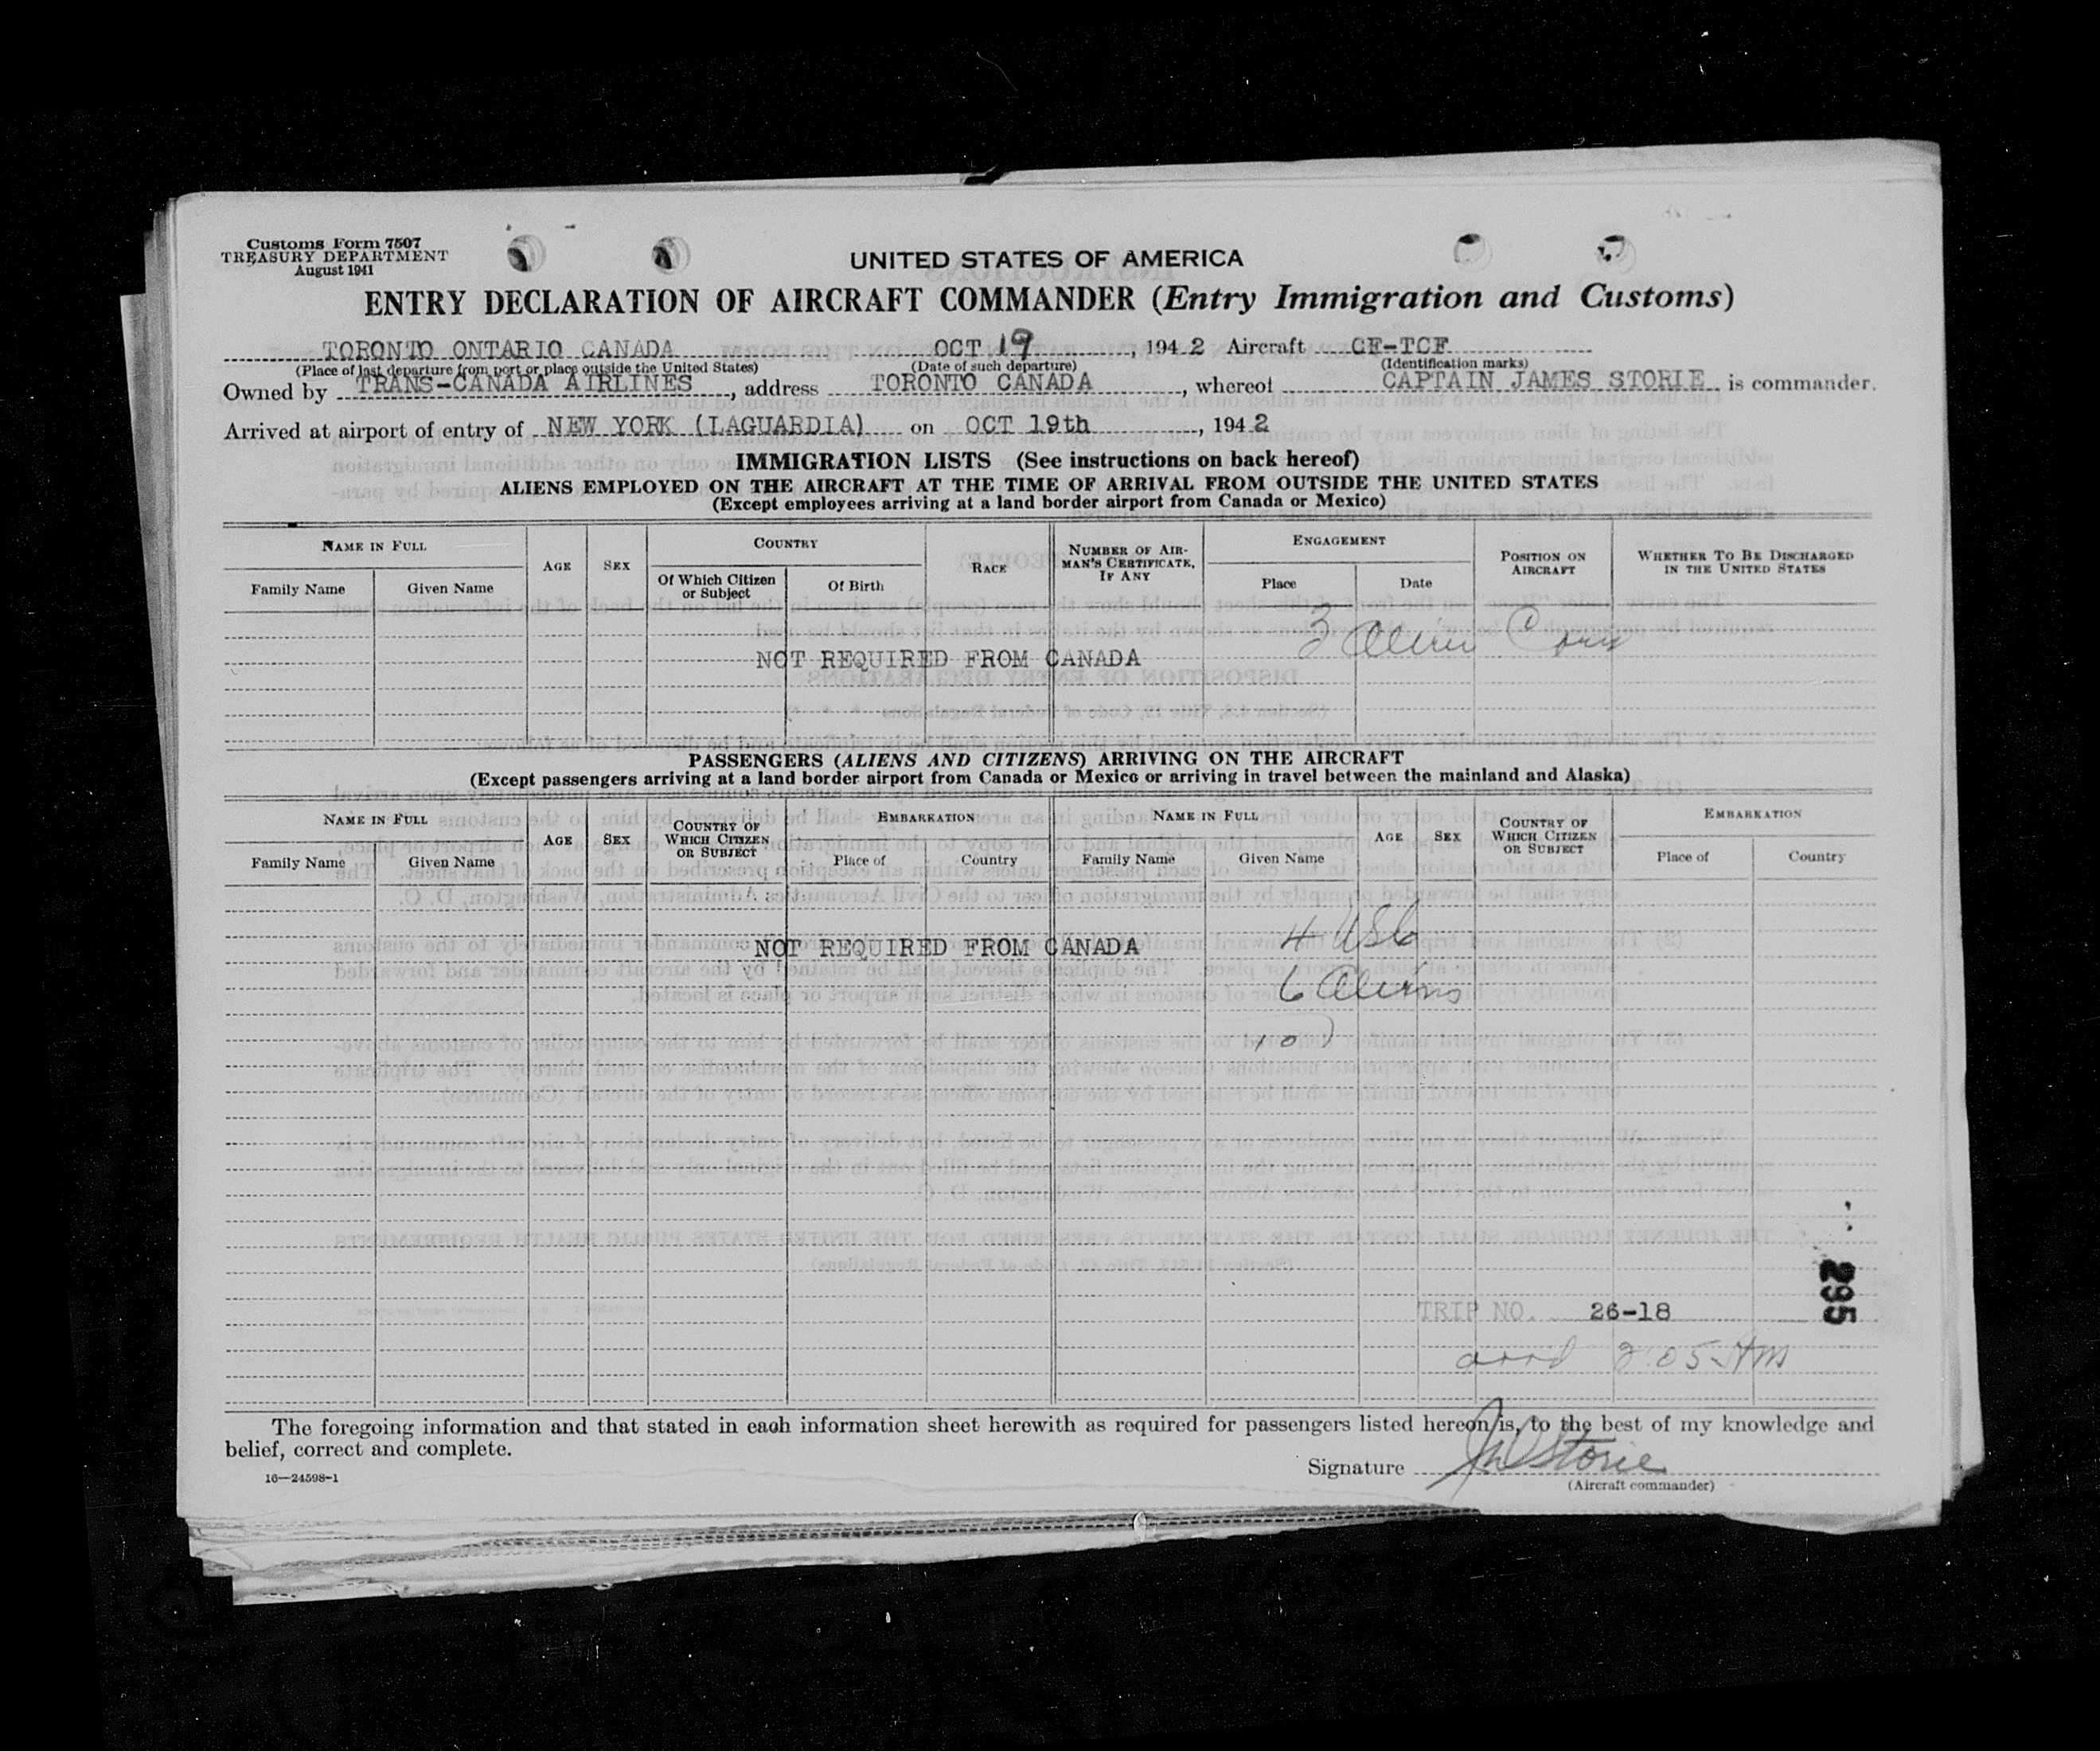 Customs Form 7507
TREASURY DEPARTMENT
August 1941
UNITED STATES OF AMERICA
ENTRY DECLARATION OF AIRCRAFT COMMANDER (Entry Immigration and Customs)
TORONTO ONTARIO CANADA OCT 19, 1942 Aircraft CF-TCF
(Place of last departure from port or place outside the United States) (Date of such departure) (Identification marks)
Owned by TRANS-CANADA AIRLINES, address TORONTO CANADA, whereof CAPTAIN JAMES STORIE is commander.
Arrived at airport of entry of NEW YORK (LAGUARDIA) on OCT 19th, 1942
IMMIGRATION LISTS (See instructions on back hereof)
ALIENS EMPLOYED ON THE AIRCRAFT AT THE TIME OF ARRIVAL FROM OUTSIDE THE UNITED STATES
(Except employees arriving at a land border airport from Canada or Mexico)
NAME IN FULL
Family Name Given Name
AGE
SEX
COUNTRY
Of Which Citizen or Subject
Of Birth
RACE
NUMBER OF AIR-
MAN'S CERTIFICATE,
IF ANY
ENGAGEMENT
Place Date
POSITION ON
AIRCRAFT
WHETHER TO BE DISCHARGED
IN THE UNITED STATES
3 Alien
NOT REQUIRED FROM CANADA
PASSENGERS (ALIENS AND CITIZENS) ARRIVING ON THE AIRCRAFT
(Except passengers arriving at a land border airport from Canada or Mexico or arriving in travel between the mainland and Alaska)
NAME IN FULL
Family Name Given Name
AGE
SEX
COUNTRY OF
WHICH CITIZEN
OR SUBJECT
EMBARKATION
Place of Country
NAME IN FULL
Family Name Given Name
AGE
SEX
COUNTRY OF
WHICH CITIZEN
OR SUBJECT
EMBARKATION
Place of Country
4 USC
NOT REQUIRED FROM CANADA
6 Aliens
10
295
TRIP NO. 26-18
arrd 2:05 AM
The foregoing information and that stated in each information sheet herewith as required for passengers listed hereon is, to the best of my knowledge and
belief, correct and complete.
16—24598-1
Signature Storie
(Aircraft commander)